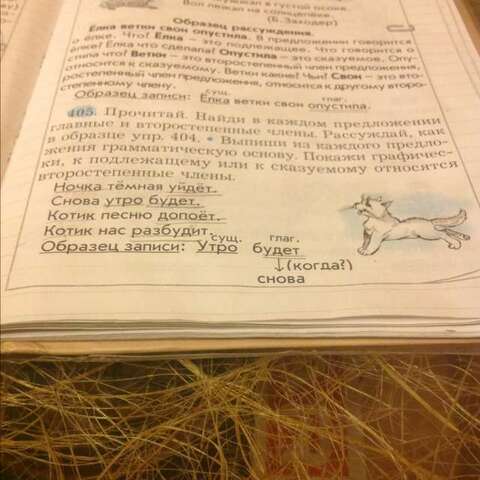 в густой осоке.
Вол лежал на солнцепёке.
(Б. Заходер)
Образец рассуждения.
Ёлка ветки свои опустила. В предложении говорится
о ёлке. Что? Ёлка — это подлежащее. Что говорится о
ёлке? Ёлка что сделала? Опустила — это сказуемое. Опу-
стила что? Ветки — это второстепенный член предложения,
относится к сказуемому. Ветки какие? Чьи? Свои — это вто-
ростепенный член предложения, относится к другому второ-
степенному члену.
сущ. глаг.
Образец записи: Ёлка ветки свои опустила.
405. Прочитай. Найди в каждом предложении
главные и второстепенные члены. Рассуждай, как
в образце упр. 404. • Выпиши из каждого предло-
жения грамматическую основу. Покажи графичес-
ки, к подлежащему или к сказуемому относятся
второстепенные члены.
Ночка тёмная уйдёт.
Снова утро будет.
Котик песню допоёт.
Котик нас разбудит.
сущ. глаг.
Образец записи: Утро будет
↓(когда?)
снова